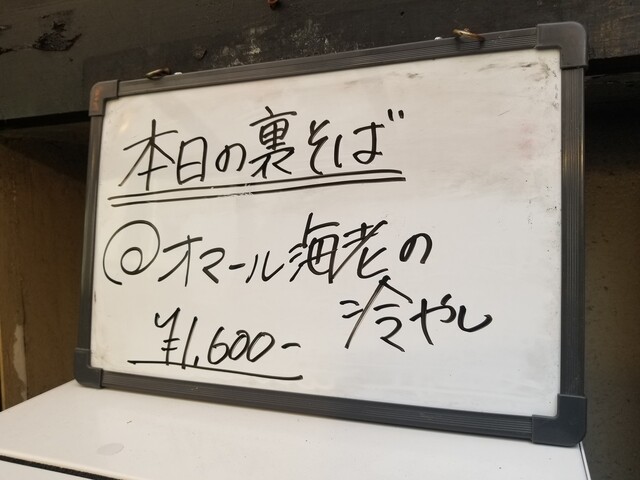 本日の裏そば
◎オマール海老の
冷やし
¥1,600-